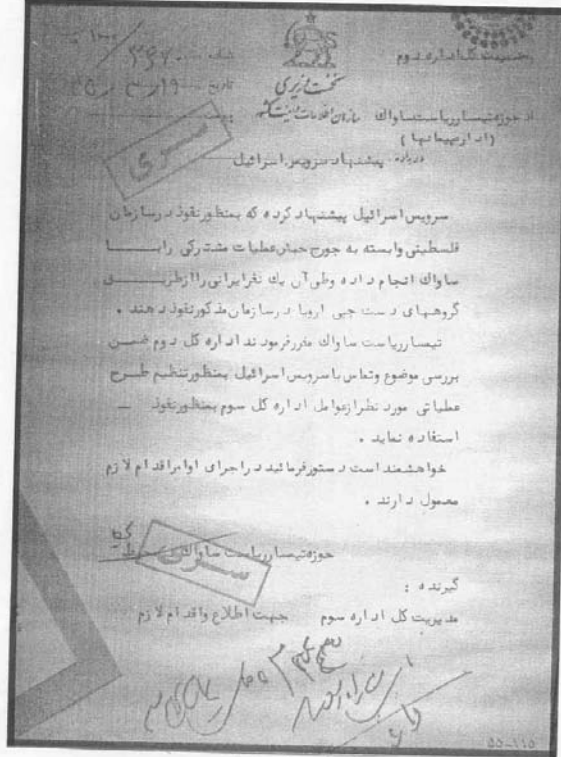 مدیریت کل اداره دوم
شماره
تاریخ
نخست وزیری
سازمان اطلاعات و امنیت کشور
از حوزه تیمسار ریاست ساواک
(اداره پیمانها)
سری
درباره پیشنهاد سرویس اسرائیل
سرویس اسرائیل پیشنهاد کرده که بمنظور نفوذ در سازمان
فلسطینی وابسته به جورج حبش عملیات مشترکی را با
ساواک انجام داده و طی آن یك نفر ایرانی را از طریق
گروههای دست چپی اروپا در سازمان مذکور نفوذ دهند .
تیمسار ریاست ساواك مقرر فرمودند اداره کل دوم ضمن
بررسی موضوع و تماس با سرویس اسرائیل بمنظور تنظیم طرح
عملیاتی مورد نظر از عوامل اداره کل سوم بمنظور نفوذ
استفاده نماید .
خواهشمند است دستور فرمائید در اجرای اوامر اقدام لازم
معمول دارند .
حوزه تیمسار ریاست ساواك
سری
گیرنده :
مدیریت کل اداره سوم جهت اطلاع و اقدام لازم
55-115